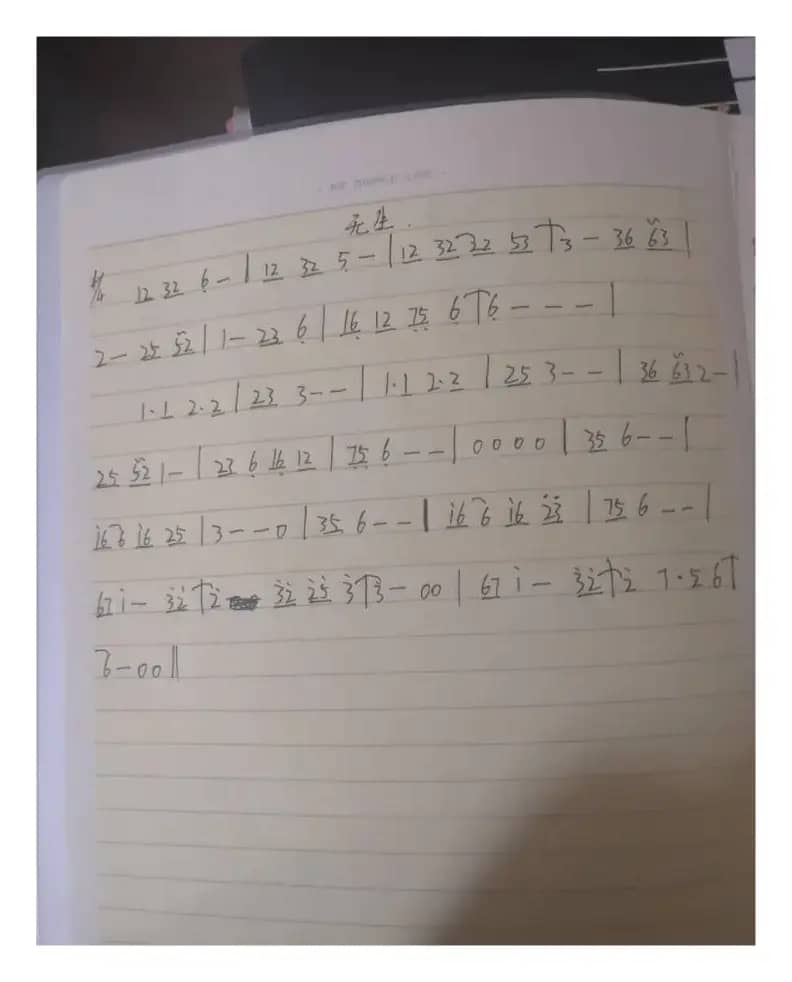 无生.
4/4 12 32 6̣ - | 12 32 5̣ - | 12 32 32 53 | 3 - 36 63 |
2 - 25 52 | 1 - 23 6̣ | 16̣ 12 7̣5̣ 6̣ | 6̣ - - - |
1·1 2·2 | 23 3 - - | 1·1 2·2 | 25 3 - - | 36 63 2 - |
25 52 1 - | 23 6̣ 16̣ 12 | 7̣5̣ 6̣ - - | 0 0 0 0 | 35 6 - - |
i6 6 i6 25 | 3 - - 0 | 35 6 - - | i6 6 i6 2̇3̇ | 75 6 - - |
67 i - 3̇2̇ | 2̇ 3̇2̇ 2̇5 3̇ | 3̇ - 00 | 67 i - 3̇2̇ | 2̇ 7·5 6 |
6 - 00 ‖